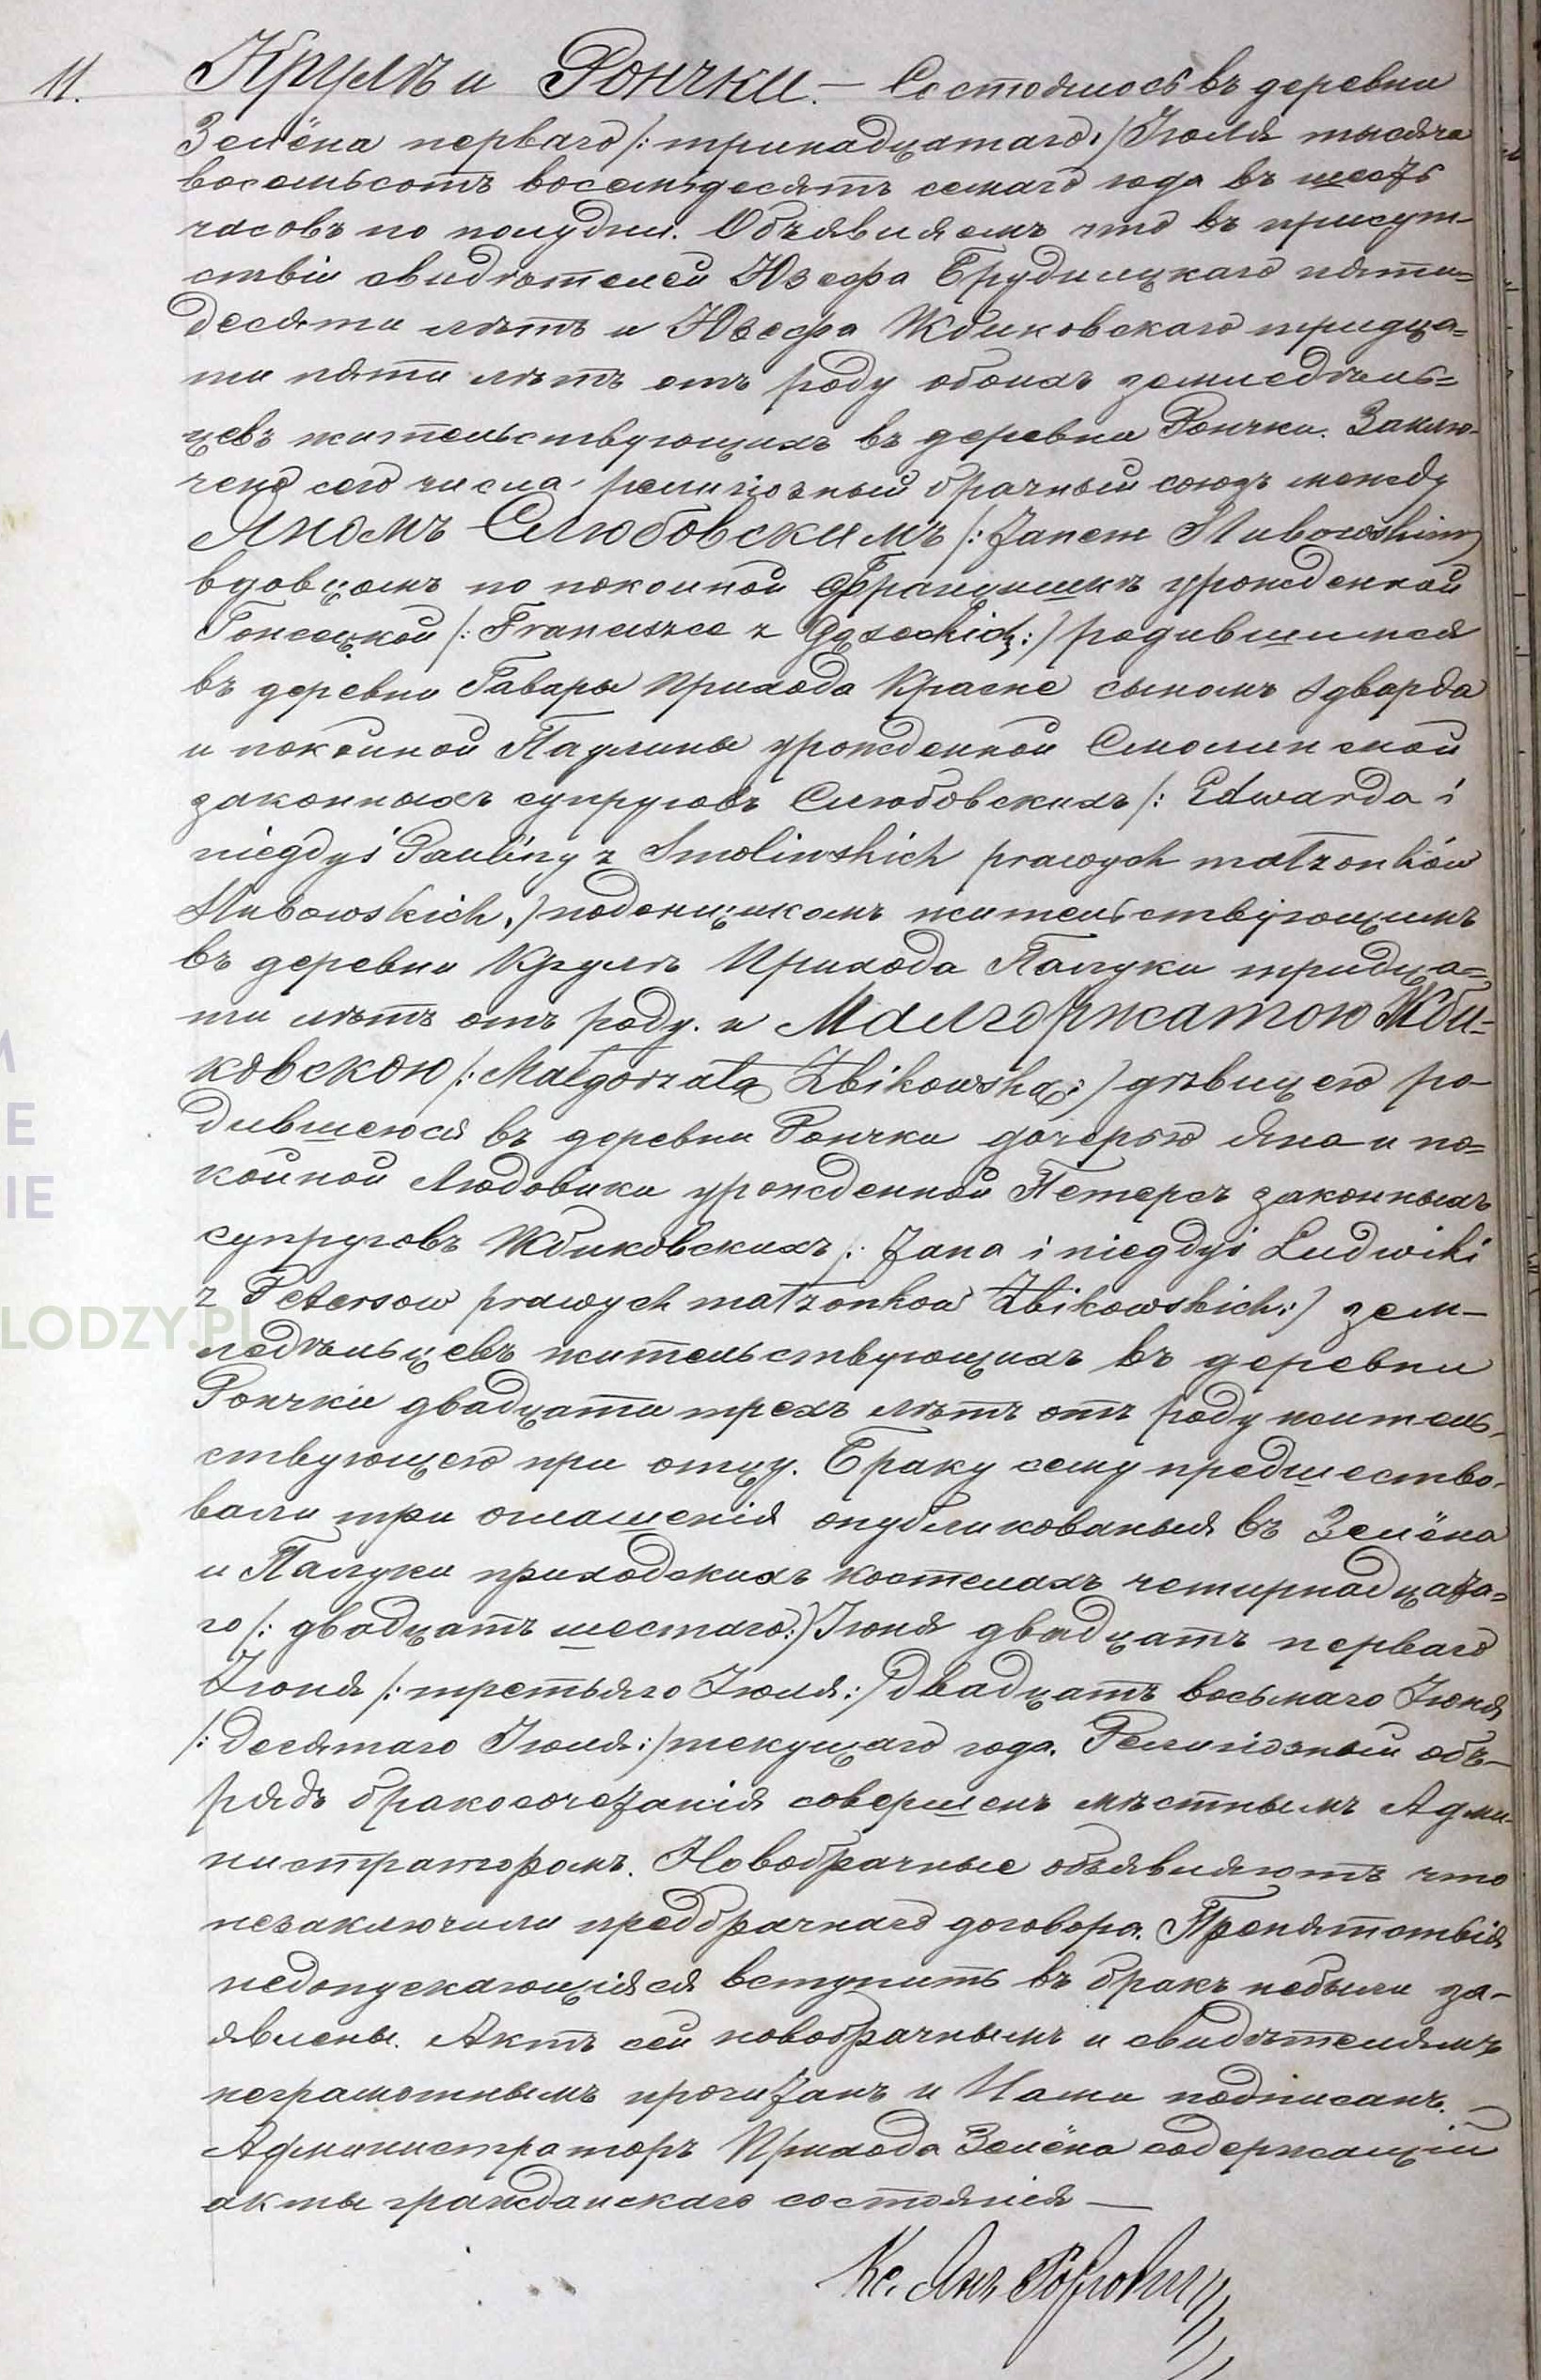 11. Крулѣ и Рончки. — Состоялось въ деревни
Зелёна перваго /: тринадцатаго :/ Іюля тысяча
восемьсотъ восемьдесятъ семаго года въ шесть
часовъ по полудни. Объявляемъ что въ присут-
ствіи свидѣтелей Юзефа Брудницкаго пяти=
десяти лѣтъ и Юзефа Жбиковскаго тридца=
ти пяти лѣтъ отъ роду обоихъ земледѣль=
цевъ жительствующихъ въ деревни Рончки. Заклю-
чено сего числа религіозный брачный союзъ между
Яномъ Слюбовскимъ /: Janem Słubowskim
вдовцомъ по покойной Францишкѣ урожденной
Гонсецкой /: Franciszce z Gąseckich :/ родившимся
въ деревни Гавары Прихода Красне сыномъ Эдварда
и покойной Паулины урожденной Смолинской
законныхъ супруговъ Слюбовскихъ /: Edwarda i
niegdyś Pauliny z Smolinskich prawych małżonków
Słubowskich :/ поденщикомъ жительствующимъ
въ деревни Крулѣ Прихода Палуки тридца=
ти лѣтъ отъ роду. и Малгоржатою Жби-
ковскою /: Małgorzatą Żbikowską :/ дѣвицею ро-
дившеюся въ деревни Рончки дочерью Яна и по=
койной Людовики урожденной Петерсъ законныхъ
супруговъ Жбиковскихъ /: Jana i niegdyś Ludwiki
z Petersow prawych małżonkow Żbikowskich :/ зем-
ледѣльцевъ жительствующихъ въ деревни
Рончки двадцати трехъ лѣтъ отъ роду житель-
ствующею при отцу. Браку сему предшество-
вали три оглашенія опубликованыя въ Зелёна
и Палуки приходскихъ костелахъ четырнадцата-
го /: двадцатъ шестаго :/ Іюня двадцатъ перваго
Іюня /: третьяго Іюля :/ двадцатъ восьмаго Іюня
/: десятаго Іюля :/ текущаго года. Религіозный объ-
рядъ бракосочетанія совершенъ мѣстнымъ Адми-
нистраторомъ. Новобрачные объявляютъ что
незаключили предбрачнаго договора. Препятствія
недопускающіяся вступить въ бракъ небыли за-
явлены. Актъ сей новобрачнымъ и свидѣтелямъ
неграмотнымъ прочитанъ и Нами подписанъ. —
Администраторъ Прихода Зелёна содержащій
акты гражданскаго состоянія —
Кс. Янъ
LODZY.PL